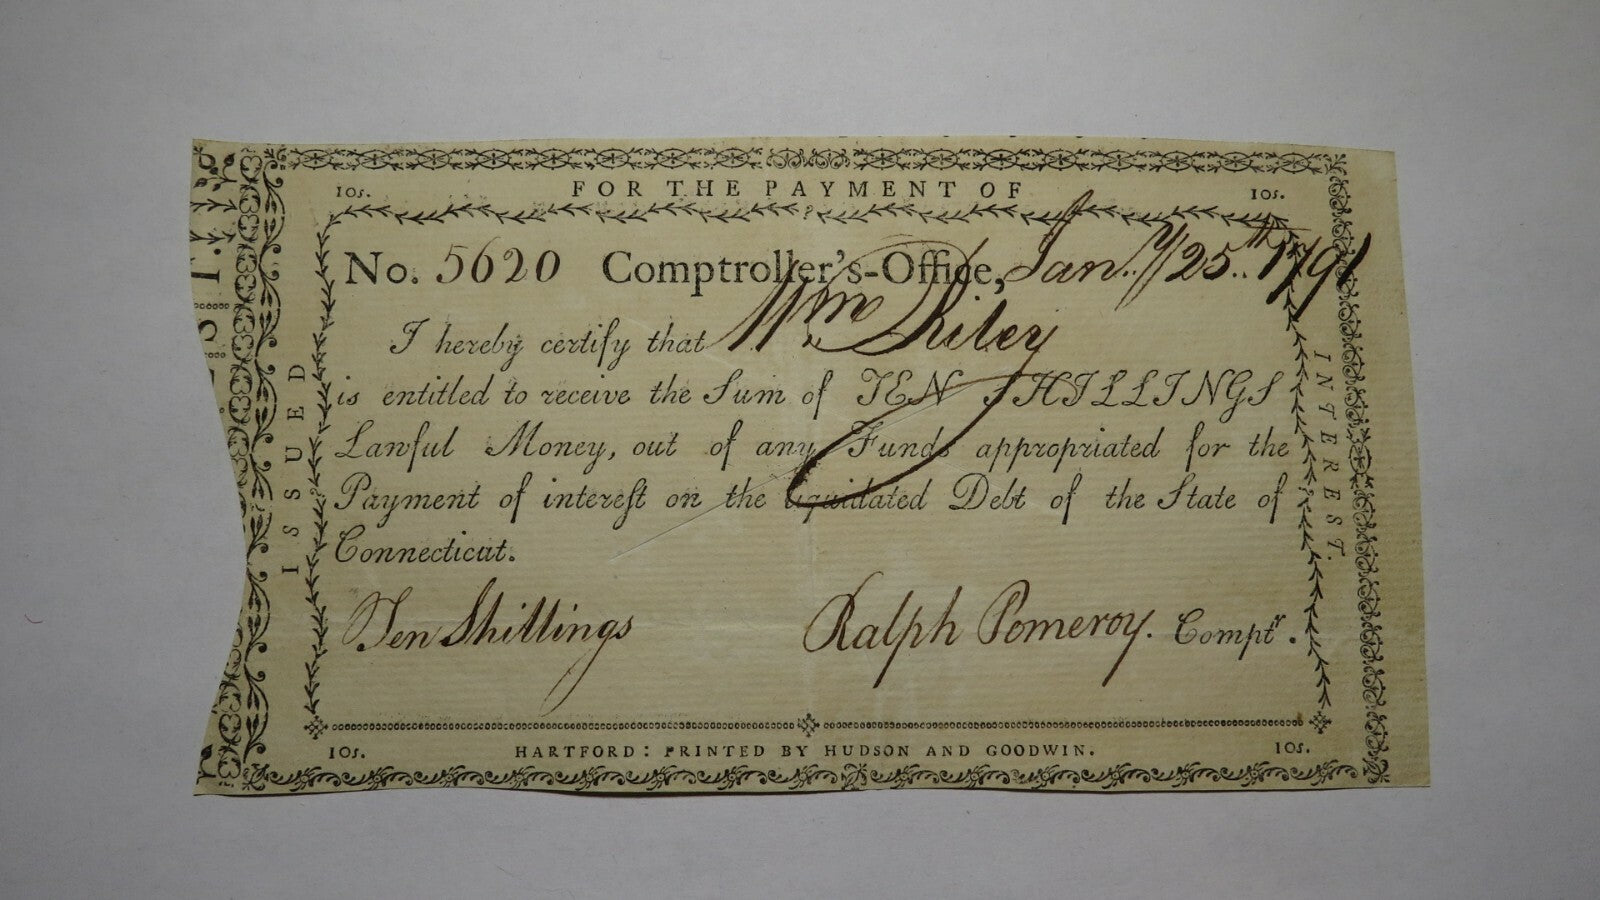 10s. FOR THE PAYMENT OF 10s.
No. 5620 Comptroller's-Office, Jan.y 25th 1791
I hereby certify that Wm Riley
is entitled to receive the Sum of TEN SHILLINGS
Lawful Money, out of any Funds appropriated for the
Payment of intereſt on the liquidated Debt of the State of
Connecticut.
Ten Shillings Ralph Pomeroy. Comptr.
10s. HARTFORD: PRINTED BY HUDSON AND GOODWIN. 10s.
ISSUED
INTEREST.